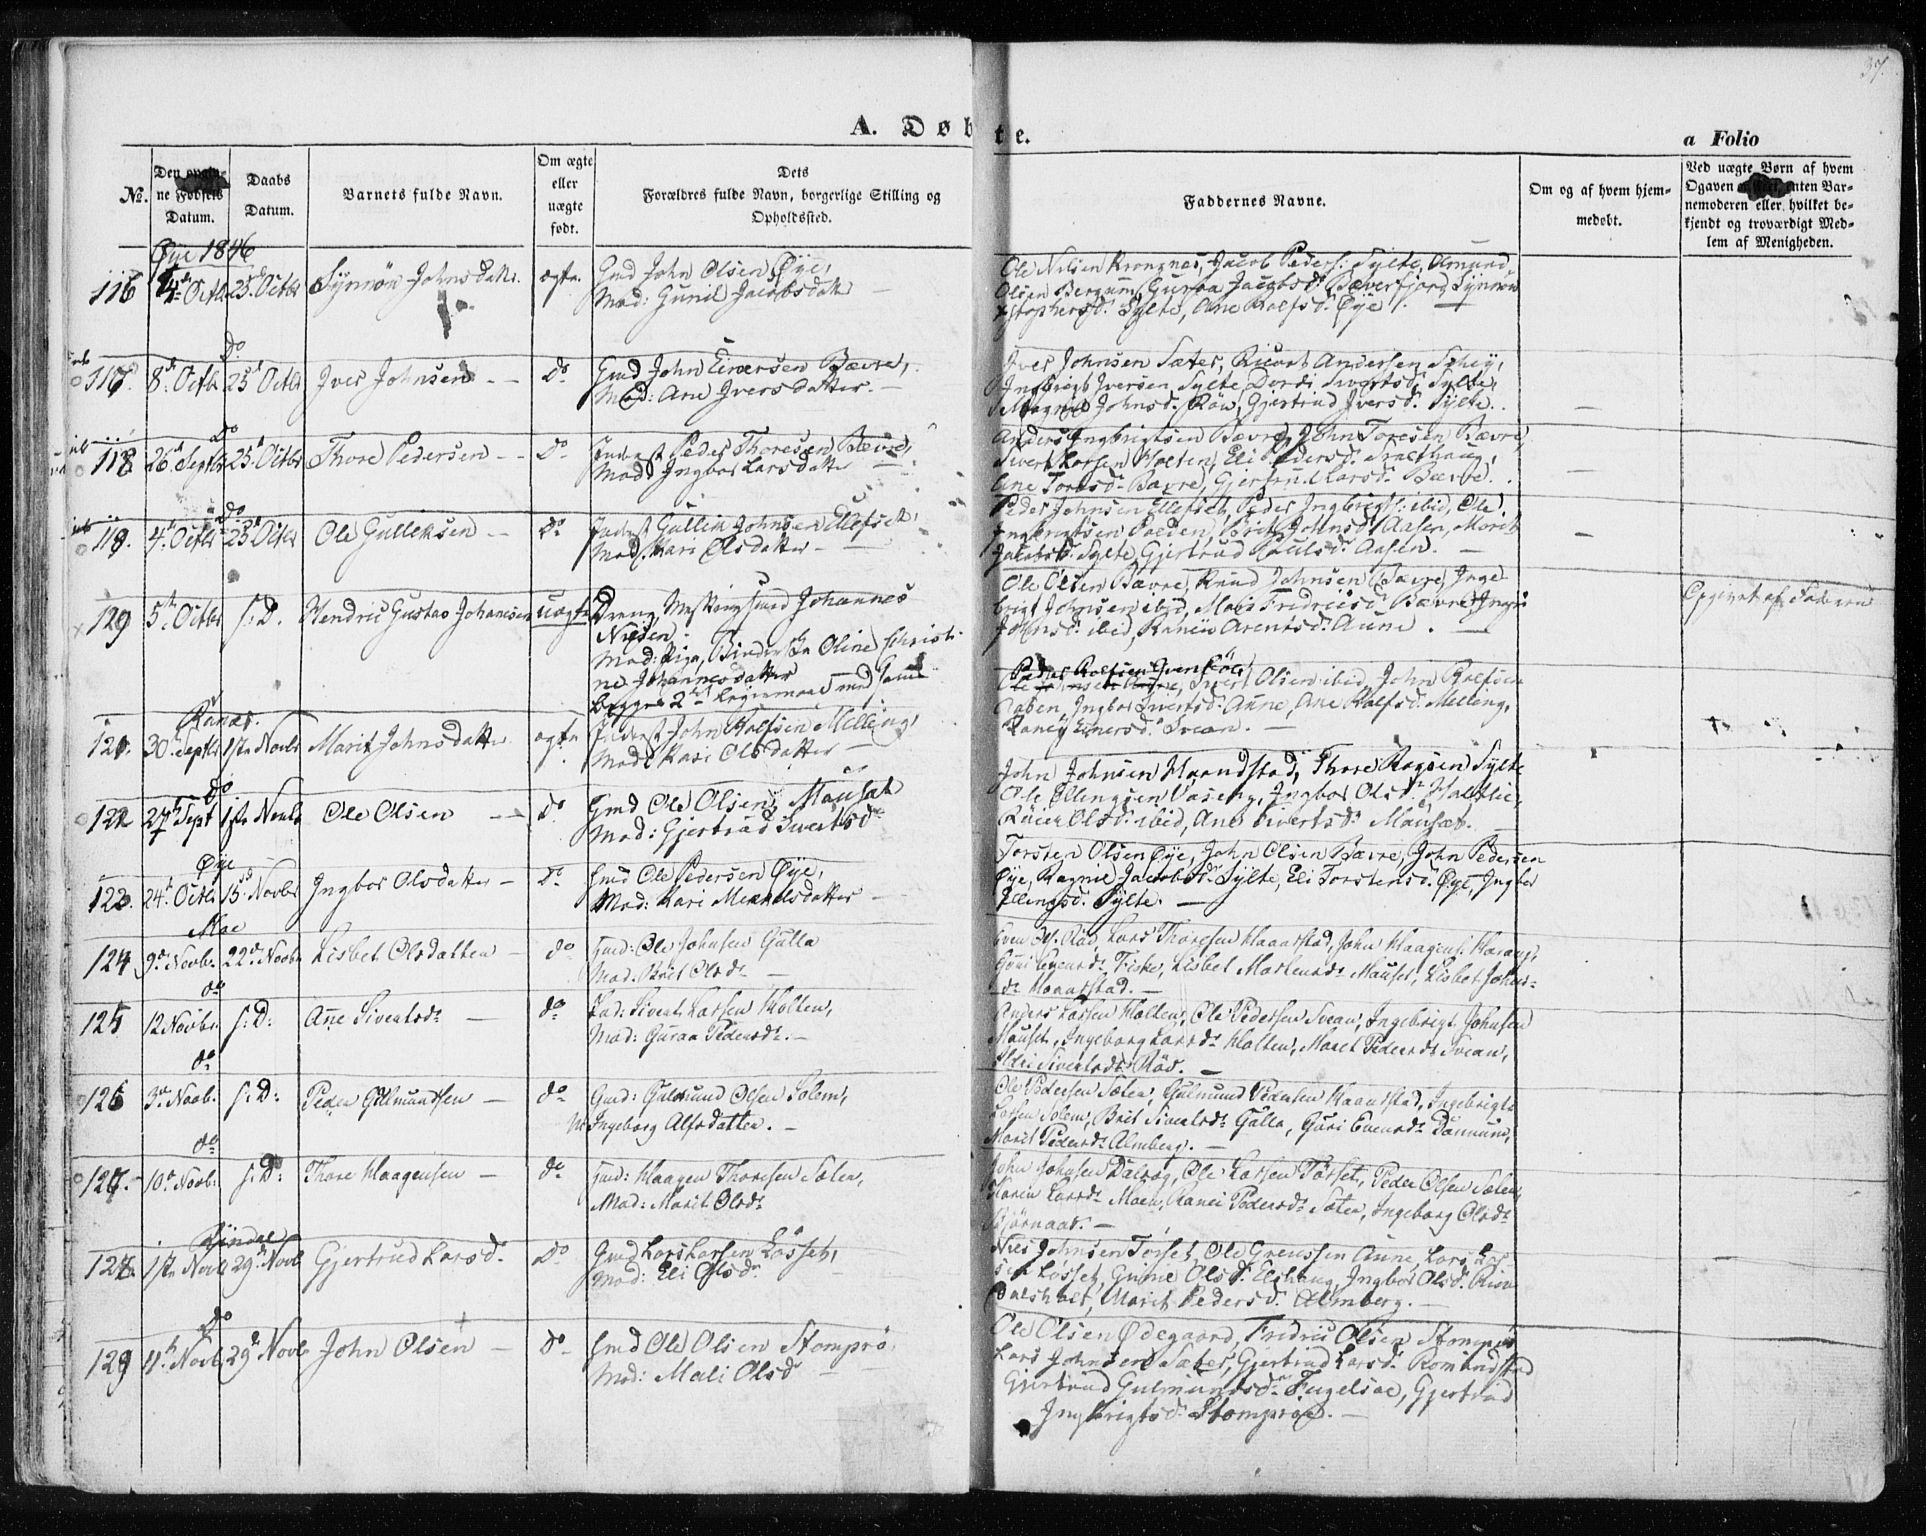 37.
A. Døbte.
a Folio
No.
Den opgivne Fødsels Datum.
Daabs Datum.
Barnets fulde Navn.
Om ægte eller uægte født.
Dets Forældres fulde Navn, borgerlige Stilling og Opholdssted.
Faddernes Navne.
Om og af hvem hjemmedøbt.
Ved uægte Børn af hvem Opgaven er skeet, enten Barnemoderen eller hvilket bekjendt og troværdigt Medlem af Menigheden.
Øye 1846
116 4de Octbr 25d Octbr Synnøv Johnsdatter. ægte. Gmd John Olsen Øye,
Mod: Gunil Jacobsdatter
Ole Nilsen Krongnes, Jacob Peders: Sylte, Amund
Olsen Bergum, Guraa Jacobsd. Bæverfjord, Synnøv
Xstophersd. Sylte, Ane Rolfsd. Øye.
Do
117 8de Octbr 25d Octbr Iver Johnsen Do Gmd John Einersen Bævre,
Mod: Ane Iversdatter.
Iver Johnsen Sæter, Andersen
Ingbrigt Iversen Sylte, Dordi Sivertsd. Sylte,
Magnil Johnsd. Røv, Gjertrud Iversd. Sylte.
Do
118 26d Septbr 25d Octbr Thore Pedersen Do Inderst Peder Thoresen Bævre,
Mod: Ingbor Larsdatter
Anders Ingbrigtsen Bævre, John Toresen Bævre,
Sivert Larsen Holten, Eli Pedersd.
Ane Toresd. Bævre, Gjertru Larsd. Bævre.
Do
119. 4de Octbr 25d Octbr Ole Gulleksen Do Inderst Gullik Johnsen Ellefset,
Mod: Kari Olsdatter
Peder Johnsen Ellefset, Peder Ingbrigts: ibid, Ole
Ingbrigtsen Polden, Brit Johnsd. Aasen, Marit
Jacobsd. Sylte, Gjertrud Paulsd. Aasen.
120 5te Octbr s: D. Hendric Gustav Johannesen uægte Dreng, Johannes
Nilsen.
Mod: Pige, Oline Christi-
ne Johannesdatter
begges 2det Leiermaal med samme
Ole Olsen Bævre, Knud Johnsen Bævre, Inge-
brigt Johnsen ibid, Mali Fredriksd. Bævre, Ingri
Johnsd. ibid, Ranei Arentsd. Aune.
Opgivet af Faderen
Ranæs.
121. 30d Septbr 1ste Novbr Marit Johnsdatter ægte Inderst John Rolfsen Melling,
Mod: Kari Olsdatter
Peder Rolfsen
Sivert Olsen ibid, John Rolfsen
Ingbor Sivertsd. Aune, Ane Rolfsd. Melling,
Ranei Einersd. Svean.
Do
122 27d Sept 1ste Novbr Ole Olsen Do Gmd Ole Olsen, Mauset
Mod: Gjertrud Sivertsd
John Johnsen Haandstad, Thore Sylte
Ole Ellingsen Vaseng, Ingbor Olsd
Olsd. ibid, Ane Sivertsd. Mauset.
Øye
123. 24d Octbr 15d Novbr Ingbor Olsdatter Do Gmd Ole Pedersen Øye,
Mod: Kari Mikkelsdatter
Torsten Olsen Øye, John Olsen Bævre, John Pedersen
Øye, Ragnil Jacobsd. Sylte, Eli Torstensd. Øye, Ingbor
Ellingsd. Sylte.
Moe
124 9de Novb. 22de Novb. Lisbet Olsdatter do Gmd: Ole Johnsen Gulla
Mod: Brit Olsdr
Even Ols. Lars Thoresen Haarstad, John Haagens:
Guri Evensdr Fiske, Lisbet Mortensdr Mauset, Lisbet Johns-
dr Haarstad.
do
125 12 Novbr. s: D: Ane Sivertsdr do Ind: Sivert Larsen Holten,
Mod: Guraa Pedersdr.
Anders Larsen Holten, Ole Pedersen Svean, Ingebrigt Johnsen
Mauset, Ingeborg Larsdr Holten, Marit Pedersdr Svean,
Sivertsdr Røv.
do
126 3de Novb. s: D: Peder Gulmundsen do Gmd: Gulmund Olsen Solem,
M: Ingeborg Alfsdatter.
Ole Pedersen Sæter, Gulmund Pedersen Haandstad, Ingebrigt
Larsen Solem, Brit Sivertsdr Gulla, Guri Evensdr
Marit Pedersdr Almberg.
do
127. 10de Novb. s: D: Thore Haagensen do Gmd: Haagen Thoresen Sæter,
Mod: Marit Olsdr
John Johnsen Dalsøg, Ole Larsen Torset, Peder Olsen Sæter,
Karen Larsdr Moen, Ranei Pedersdr Sæter, Ingeborg Olsdr
Bjørnaas.
Rindal
128. 1ste Novb 29d Novb Gjertrud Larsd. Do Gmd Lars Larsen Løsset,
Mod: Eli Olsd
Nils Johnsen Torset, Ole Aune, Lars Lar-
sen Løsset, Gunil Olsd. Elshaug, Ingbor Olsd. Rin-
dalsholt, Marit Pedersd. Almberg.
Do
129 11te Novb 29d Novb John Olsen Do Gmd Ole Olsen Stomprø.
Mod: Mali Olsd
Ole Olsen Ødegaard, Fredric Olsen Stomprø
Lars Johnsen Sæter, Gjertrud Larsd. Romundstad
Gjertrud Gulmundsd. Fugelsøe, Gjertrud
Ingbrigtsd. Stomprøe.